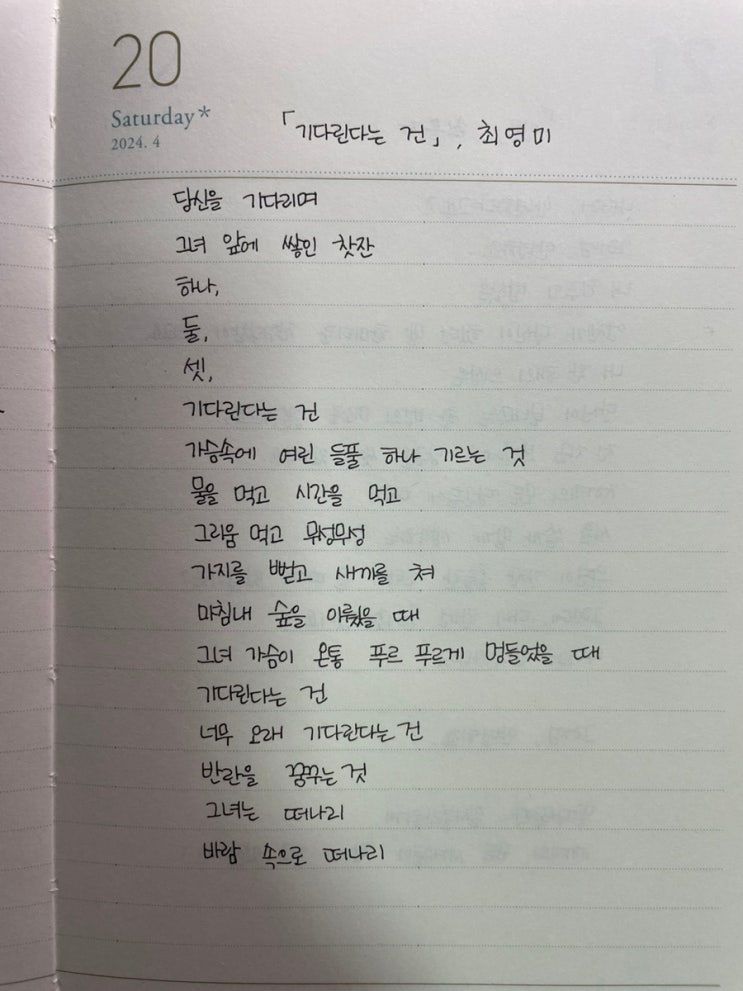 20
Saturday*
2024. 4
「기다린다는 건」, 최영미
당신을 기다리며
그녀 앞에 쌓인 찻잔
하나,
둘,
셋,
기다린다는 건
가슴속에 여린 들풀 하나 기르는 것
물을 먹고 시간을 먹고
그리움 먹고 무성무성
가지를 뻗고 새끼를 쳐
마침내 숲을 이뤘을 때
그녀 가슴이 온통 푸르 푸르게 멍들었을 때
기다린다는 건
너무 오래 기다린다는 건
반란을 꿈꾸는 것
그녀는 떠나리
바람 속으로 떠나리